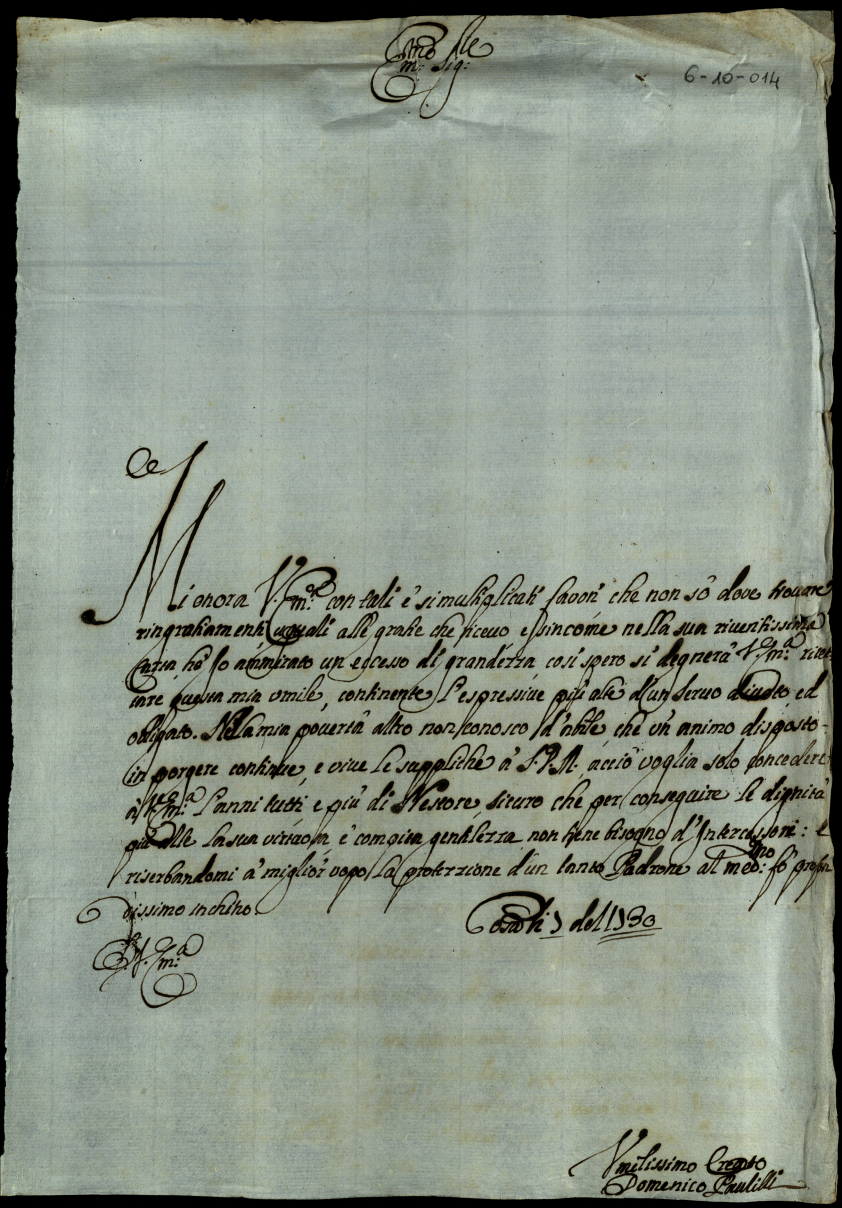 Em:mo Sig:re
6-10-014
Mi onora V. Em:a con tali e si multiplicati favori che non sò dove trovare
ringratiamenti uguali alle gratie che ricevo e sincome nella sua riveritissima
carta hò Io ammirato un eccesso di grandezza, così spero si degnerà V. Em:a
tare questa mia umile, continente l'espressive più alte d'un servo divoto, ed
obligato. Nella mia povertà altro non conosco d'abile, che un animo disposto
in porgere continue, e vive le suppliche à S.D.M. acciò voglia solo concedere
à V. Em:a l'anni tutti e più di Nestore, sicuro che per conseguire le dignità
più alte la sua virtuosa, e compita gentilezza non tiene bisogno d'Intercessori: e
riserbandomi à miglior vopo la protezzione d'un tanto Padrone al med:mo fò profon
dissimo inchino.
del 1730
D. V. Em:a
Vmilissimo
Domenico Paulilli